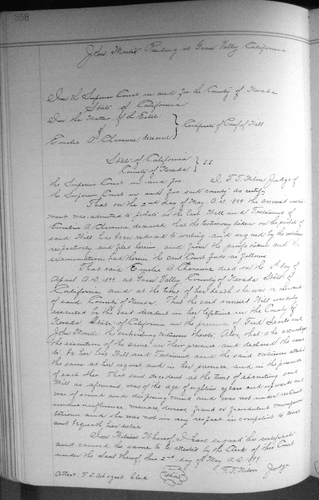 358
John Thomas Residing at Grass Valley California
In the Superior Court in and for the County of Nevada
State of California
In the Matter of the Estate
of
Emelie A. Chavanne deceased
Certificate of Proof of Will
State of California
County of Nevada } SS
I, F. T. Nilon Judge of
the Superior Court in and for said county do certify
That on the 2nd day of May A.D. 1899 the annexed instru-
ment was admitted to probate as the last Will and Testament of
Emelie A. Chavanne deceased that the testimony taken on the probate of
said Will has been reduced to writing and signed by the witnesses
respectively and filed herein, and from the proofs taken and the
examinations had therein the said Court finds as follows
That said Emelie A. Chavanne died on the day of
April A.D. 1899 at Grass Valley County of Nevada State of
California and at the time of her death she was a resident
of said County of Nevada. That the said annexed Will was duly
executed by the said decedent in her lifetime in the County of
Nevada State of California in the presence of
John the subscribing witnesses thereto, Also that she acknowledged
the execution of the same in their presence and declared the same
to be her last Will and Testament and the said witnesses attested
the same at her request and in her presence and in the presence
of each other That said decedent at the time of executing said
Will as aforesaid was of the age of eighteen years and upwards and
was of sound and disposing mind and was not under restraint
undue influence menace duress fraud or fraudulent misrepresen-
tations and she was not in any respect incompetent to devise
and bequeath her estate
In Witness Whereof, I have signed this certificate
and caused the same to be attested by the Clerk of this Court
under the Seal thereof this 2nd day of May A.D. 1899
F. T. Nilon Judge
Attest F. L. Arbogast Clerk